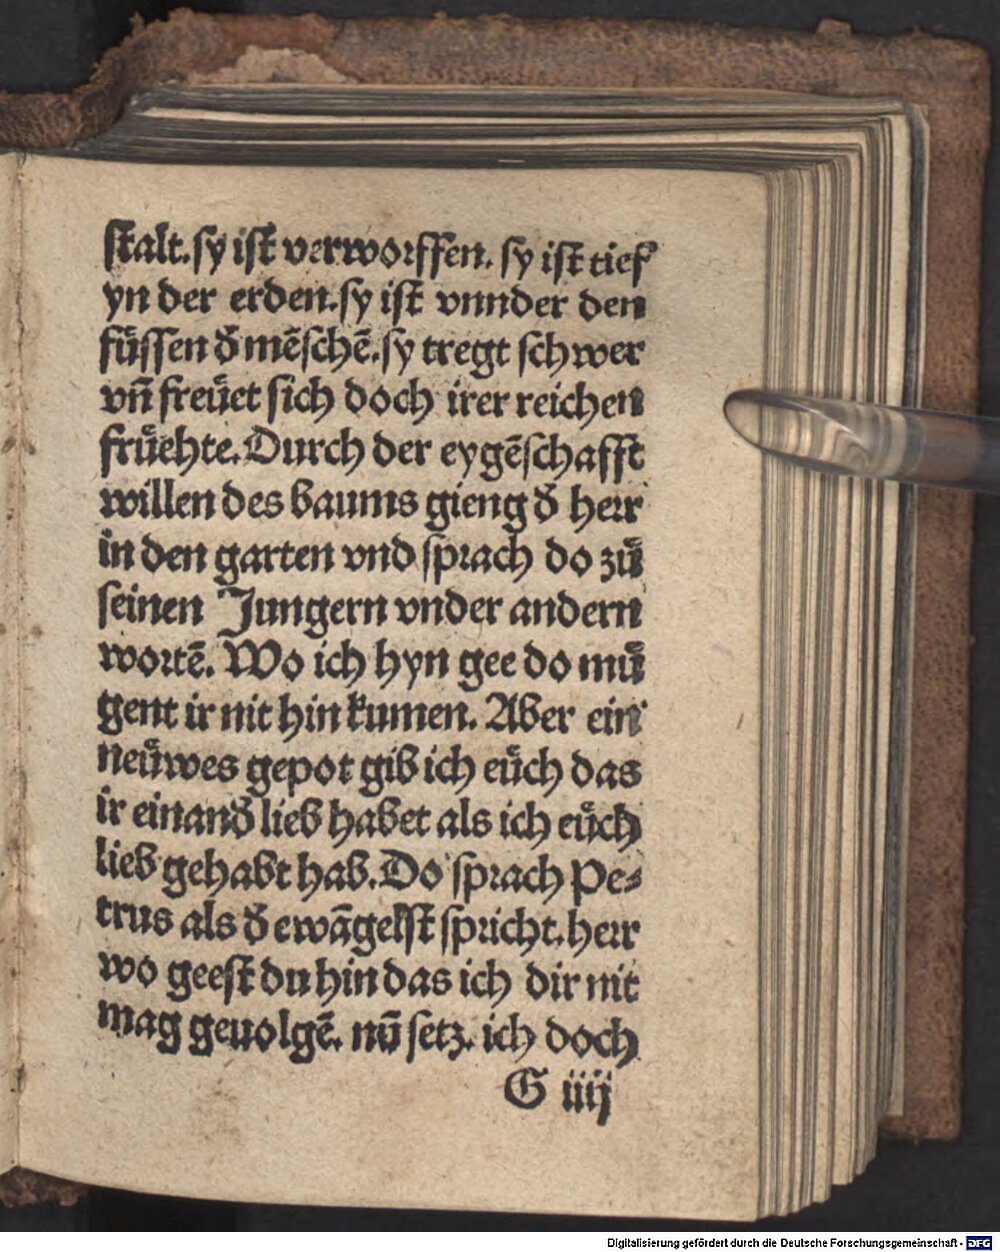 stalt. sy ist verworffen. sy ist tief
yn der erden. sy ist vnnder den
fuͤssen đ mẽschẽ. sy tregt schwer
vñ freuͤet sich doch irer reichen
fruͤehte. Durch der eygẽschafft
willen des baums gieng đ herr
in den garten vnd sprach do zuͤ
seinen Jungern vnder andern
wortẽ. Wo ich hyn gee do muͤ
gent ir nit hin kumen. Aber ein
neuͤwes gepot gib ich euͤch das
ir einanđ lieb habet als ich euͤch
lieb gehabt hab. Do sprach Pe⸗
trus als đ ewãgelist spricht. herr
wo geest du hin das ich dir nit
mag geuolgẽ. nũ setz. ich doch
G iiij
Digitalisierung gefördert durch die Deutsche Forschungsgemeinschaft - DFG